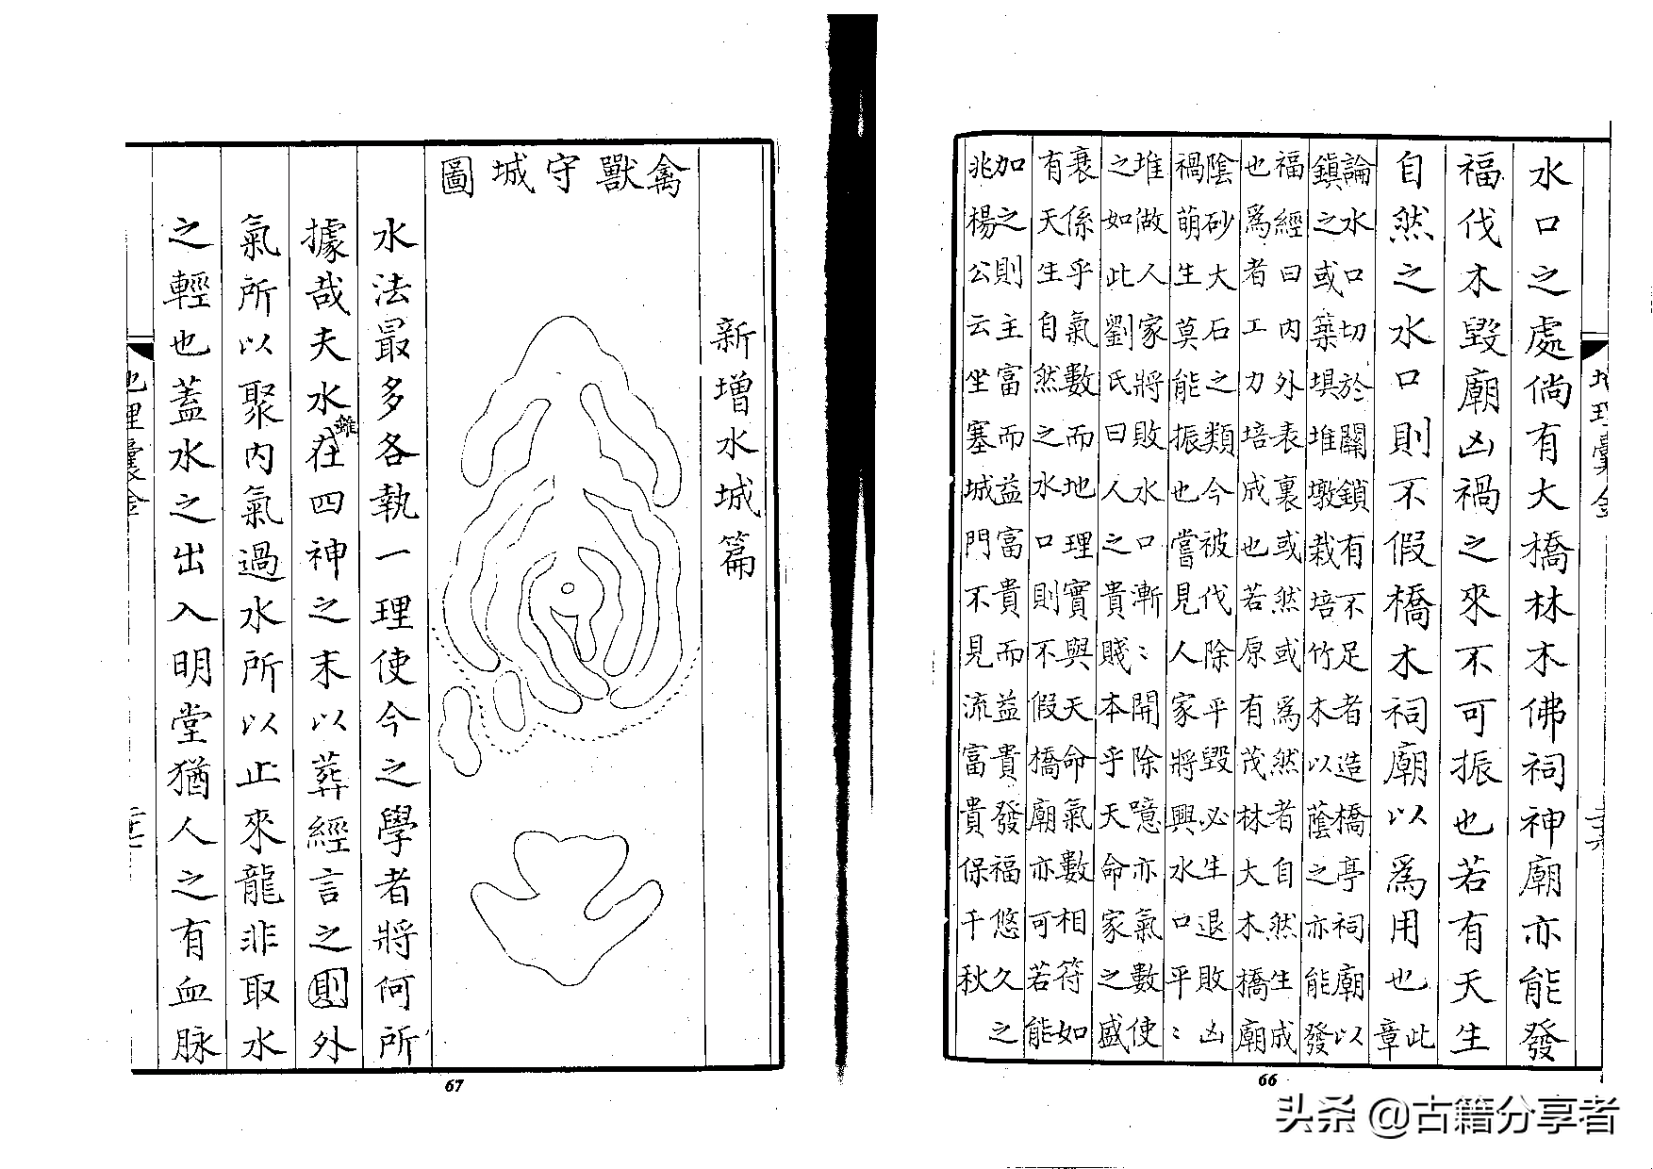 地理囊金
水口之處倘有大橋林木佛祠神廟亦能發
福伐木毀廟凶禍之來不可振也若有天生
自然之水口則不假橋木祠廟以爲用也此章
論水口切於關鎖有不足者造橋亭祠廟以
鎮之或築埧堆墩栽培竹木以蔭之亦能發
福經曰內外表裏或然或爲然者自然生成
也爲者工力培成也若原有茂林大木橋廟
陰砂大石之類今被伐除平毀必生退敗凶
禍萌生莫能振也嘗見人家將興水口平:
堆做人家將敗水口漸:開除噫亦氣數使
之如此劉氏曰人之貴賤本乎天命家之盛
衰係乎氣數而地理實與天命氣數相符如
有天生自然之水口則不假橋廟亦可若能
加之則主富而益富貴而益貴發福悠久之
兆楊公云坐塞城門不見流富貴保千秋
66
新增水城篇
禽獸守城圖
水法最多各執一理使今之學者將何所
據哉夫水雖在四神之末以葬經言之則外
氣所以聚內氣過水所以止來龍非取水
之輕也蓋水之出入明堂猶人之有血脉
地理囊金
67
头条 @古籍分享者